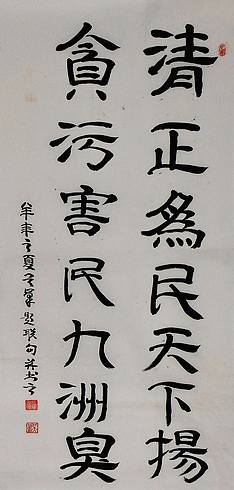 清正為民天下揚
貪污害民九洲臭
之夏 聯句并書